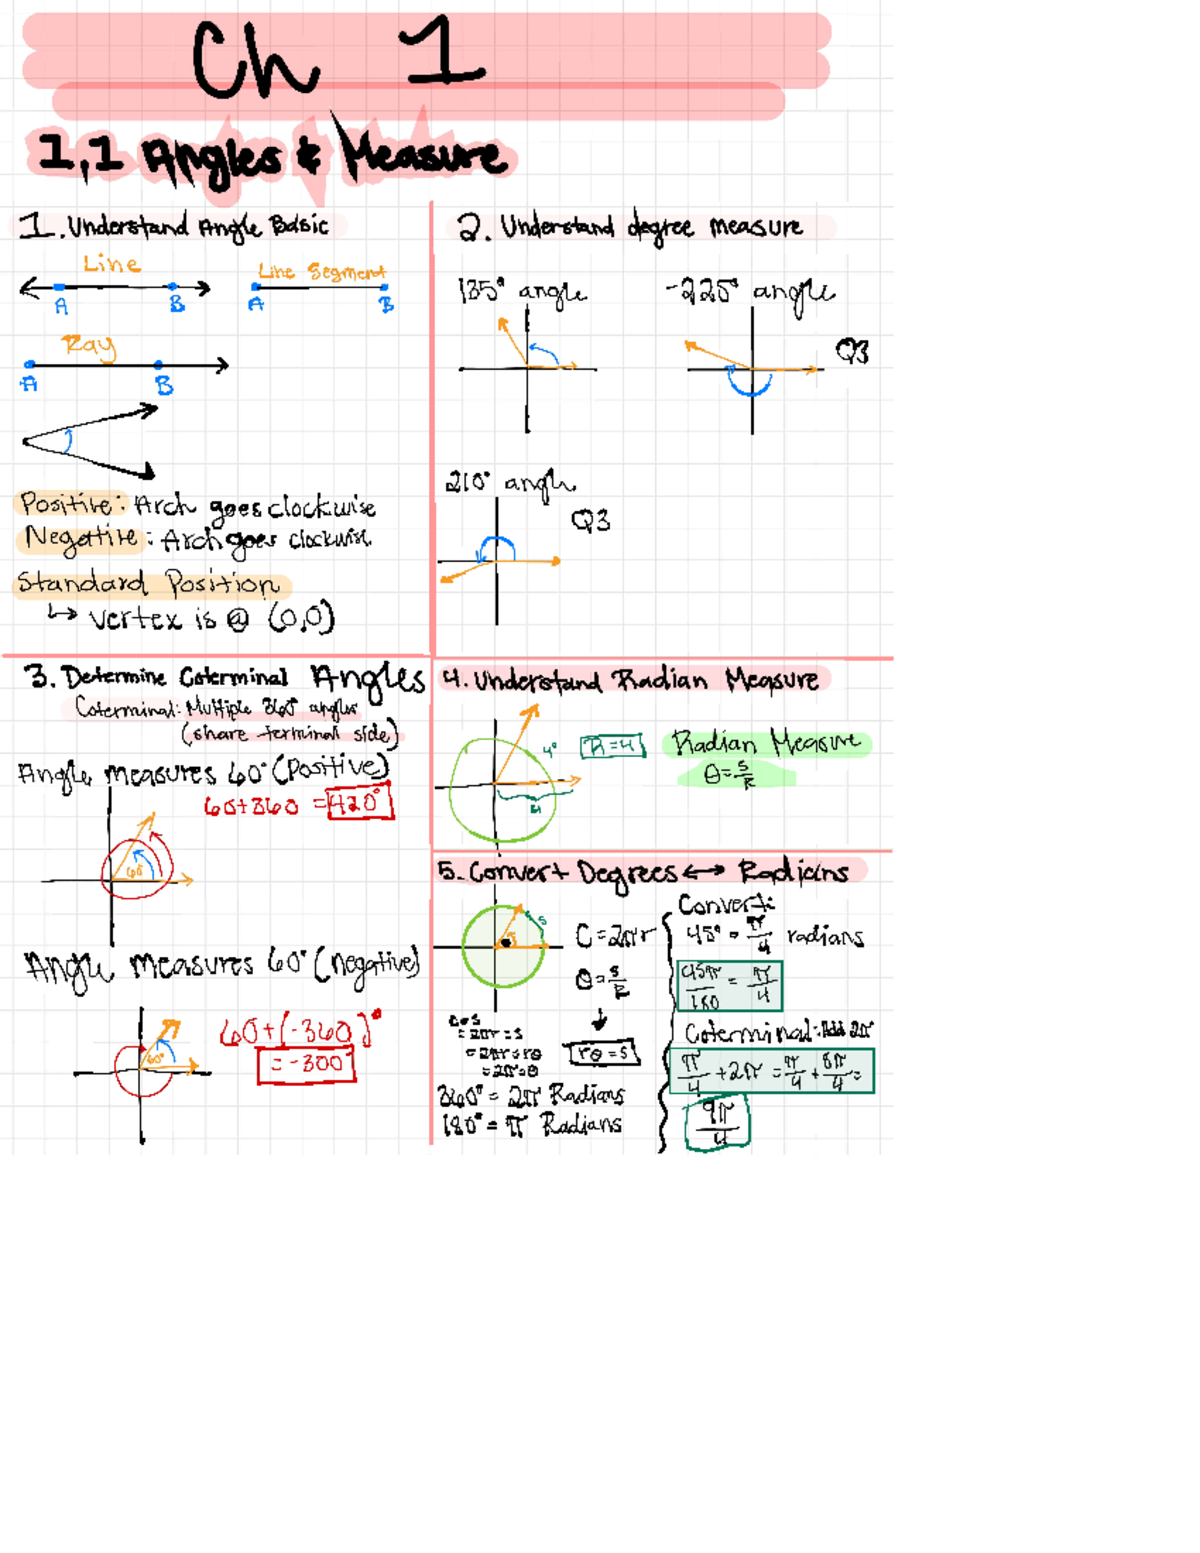 Ch 1
1,1 Angles & Measure
1. Understand Angle Basic
Line
A B
Line Segment
A B
Ray
A B
Positive: Arch goes clockwise
Negative: Arch goes clockwise
Standard Position
↳ vertex is @ (0,0)
2. Understand degree measure
135° angle
-225° angle
Q3
210° angle
Q3
3. Determine Coterminal Angles
Coterminal: Multiple 360° angles
(share terminal side)
Angle measures 60° (Positive)
60+360 = 420°
60
Angle measures 60° (negative)
60+(-360)°
= -300
60°
4. Understand Radian Measure
4"
R=4
4
Radian Measure
θ=s/R
5. Convert Degrees ↔ Radians
s
C=2πr
θ=s/R
↓
rθ=s
=2πr=s
=2πr=rθ
=2π=θ
360° = 2π Radians
180° = π Radians
Convert:
45° = π/4 radians
45π/180 = π/4
Coterminal: Add 2π
π/4 +2π = π/4 + 8π/4 =
9π/4